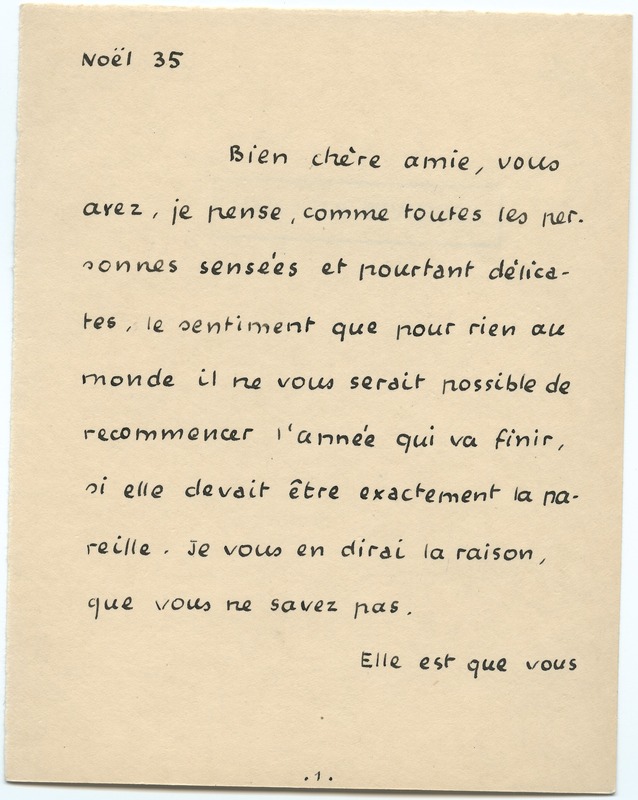 Noël 35
Bien chère amie, vous
avez, je pense, comme toutes les per-
sonnes sensées et pourtant délica-
tes, le sentiment que pour rien au
monde il ne vous serait possible de
recommencer l'année qui va finir,
si elle devait être exactement la pa-
reille. Je vous en dirai la raison,
que vous ne savez pas.
Elle est que vous
.1.